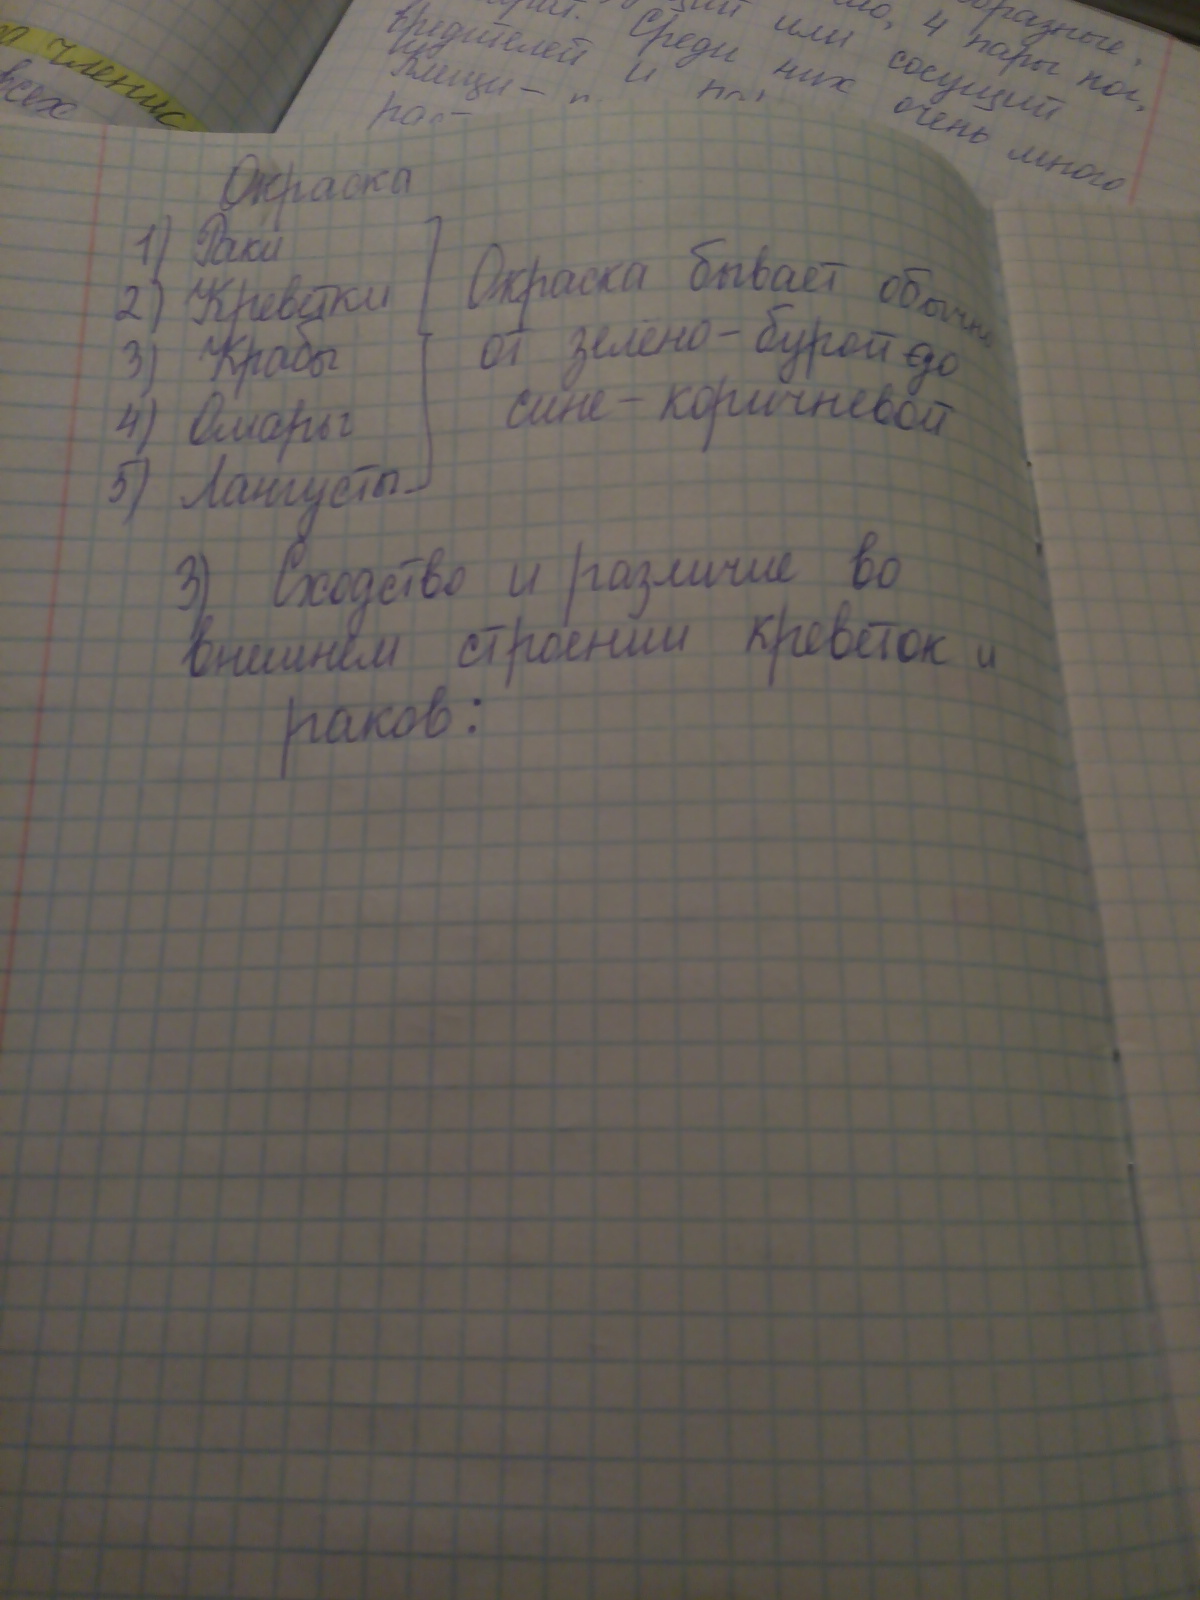 членис
всех
образные,
4 пары ног,
или сосущий
вредителей. Среди них очень много
Клещи - и
Окраска
1) Раки
2) Креветки
3) Крабы
4) Омары
5) Лангусты
Окраска бывает обычно
от зелено-бурой до
сине-коричневой
3) Сходство и различие во
внешнем строении креветок и
раков: